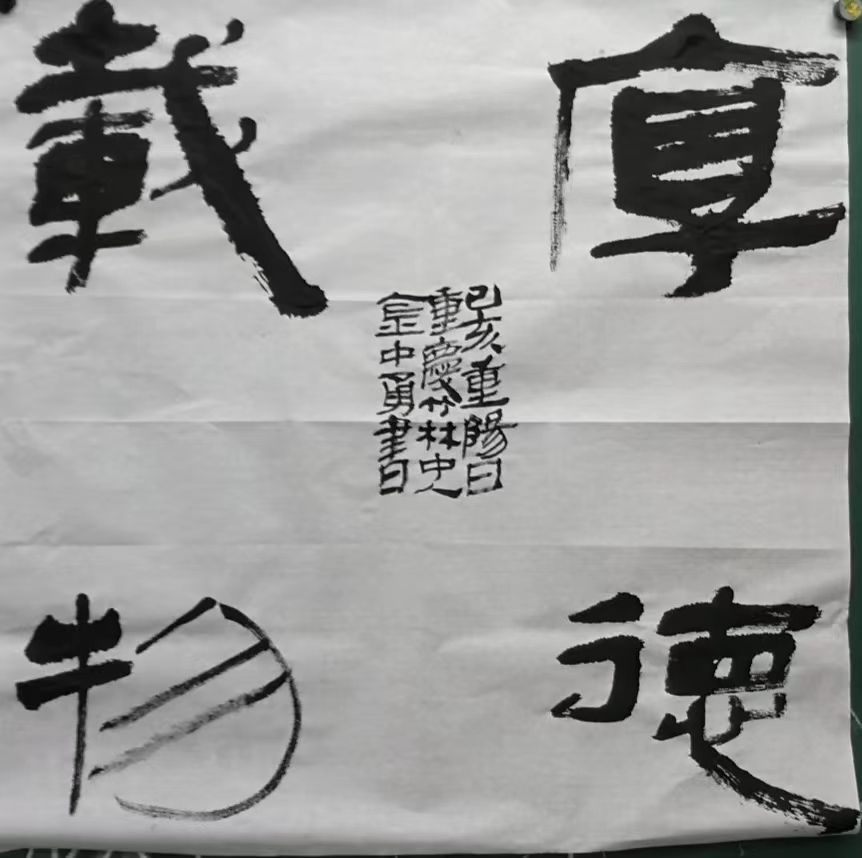 厚德
載物
己亥重陽日
重慶竹林中人
金中勇書